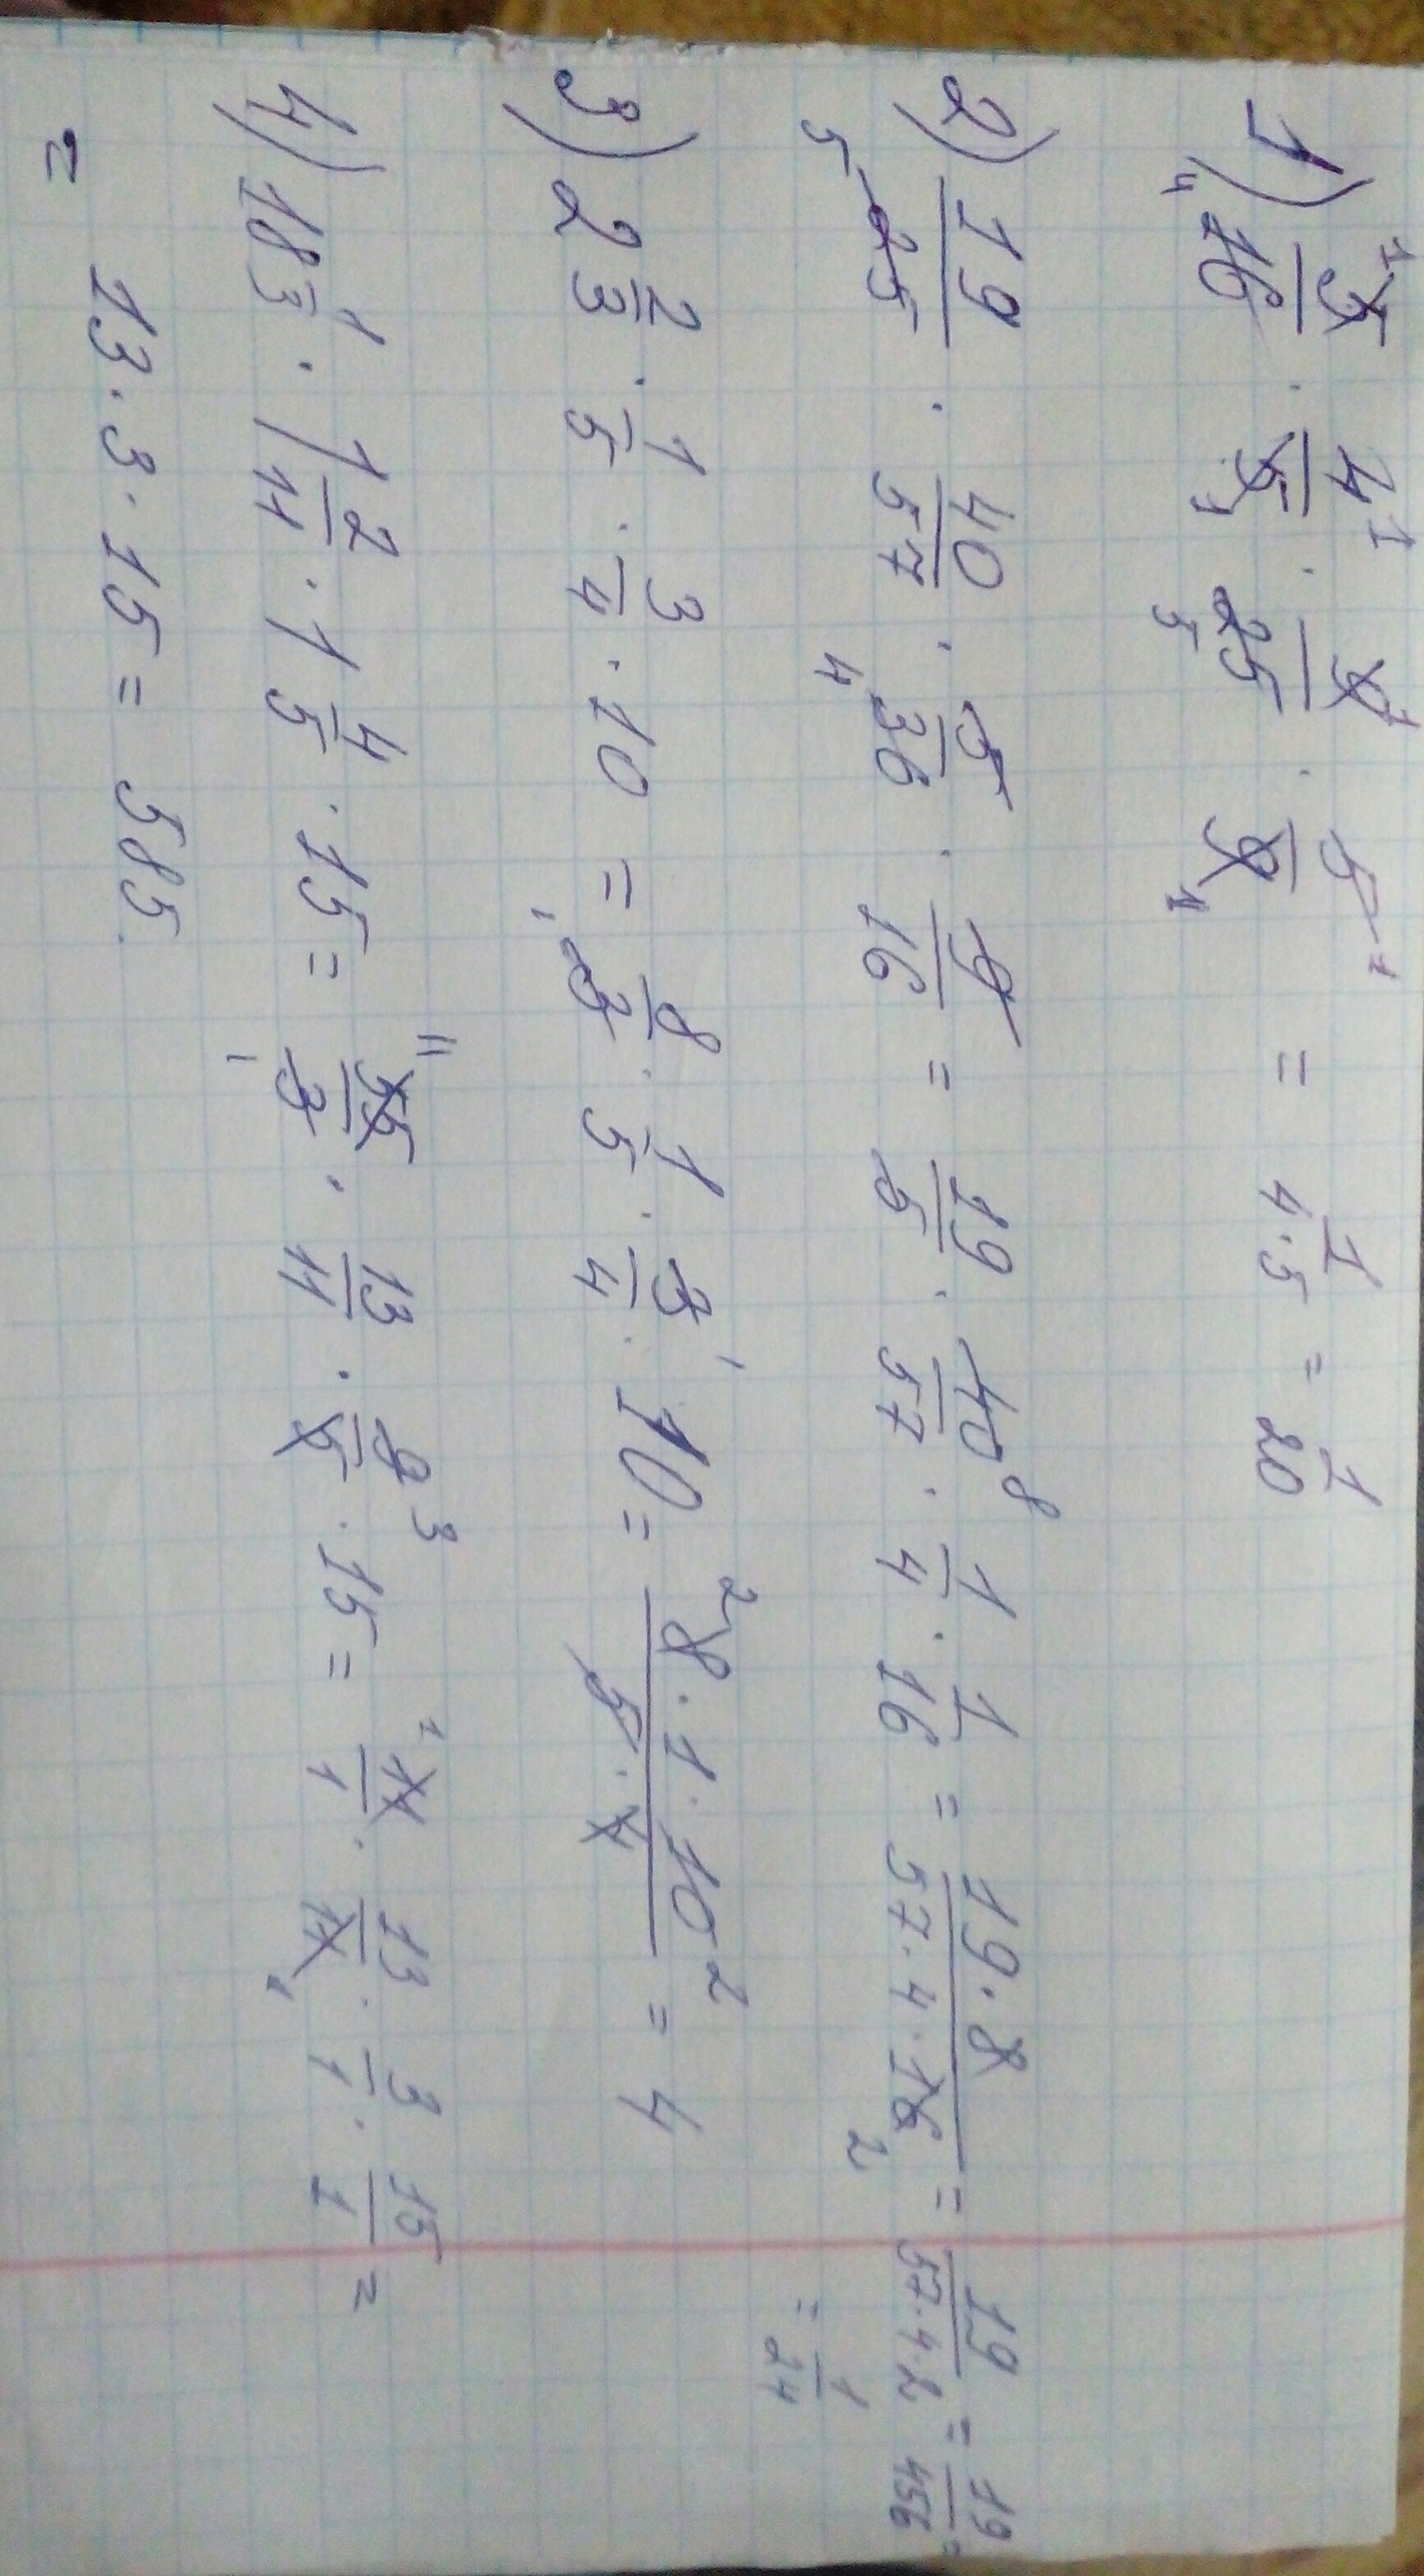 1) 5/16 · 4/5 · 9/25 · 5/9 = 1/4·5 = 1/20
2) 19/25 · 40/57 · 5/36 · 9/16 = 19/5 · 40/57 · 1/4 · 1/16 = 19·8/57·4·16 = 19/57·4·2 = 19/456 =
= 1/24
3) 2 2/3 · 1/5 · 3/4 · 10 = 8/3 · 1/5 · 3/4 · 10 = 8·1·10/5·4 = 4
4) 18 1/3 · 1 2/11 · 1 4/5 · 15 = 55/3 · 13/11 · 9/5 · 15 = 11/1 · 13/11 · 3/1 · 15/1 =
= 13·3·15 = 585.